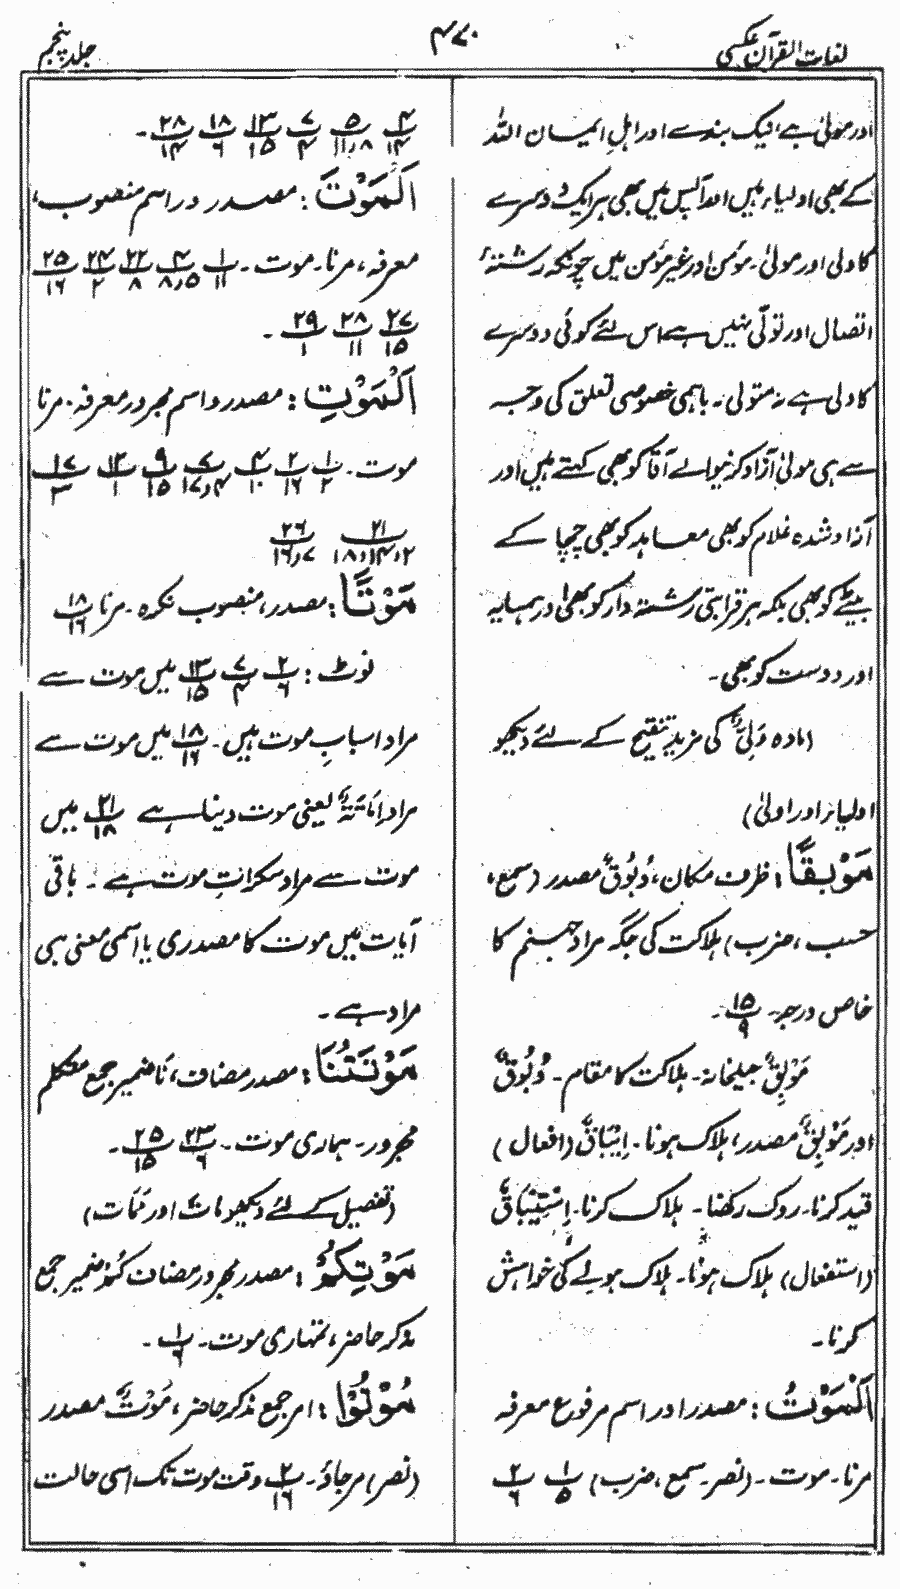 لغات القرآن عکسی
۴۷۰
جلد پنجم
اور مولیٰ ہے، نیک بندے اور اہلِ ایمان اللہ
کے بھی اولیاء ہیں اور آپس میں بھی ہر ایک دوسرے
کا ولی اور مولیٰ۔ مؤمن اور غیر مؤمن میں چونکہ رشتۂ
اتصال اور تولّی نہیں ہے اس لئے کوئی دوسرے
کا ولی ہے نہ متولی۔ باہمی خصوصی تعلق کی وجہ
سے ہی مولیٰ آزاد کرنیوالے آقا کو بھی کہتے ہیں اور
آزاد شدہ غلام کو بھی معاہد کو بھی چچا کے
بیٹے کو بھی بلکہ ہر قرابتی رشتہ دار کو بھی اور ہمسایہ
اور دوست کو بھی۔
(مادہ وَلِیٌ کی مزید تنقیح کے لئے دیکھو
اولیاء اور اولیٰ)
مَوْبِقًا : ظرف مکان، وُبُوْقٌ مصدر (سمع،
حسب، ضرب) ہلاکت کی جگہ مراد جہنم کا
خاص درجہ۔ ۱۵/۹۔
مَوْبِقٌ جیلخانہ۔ ہلاکت کا مقام۔ وُبُوْقٌ
اور مَوْبِقٌ مصدر، ہلاک ہونا۔ اِیْبَاقٌ (افعال)
قید کرنا۔ روک رکھنا۔ ہلاک کرنا۔ اِسْتِیْبَاقٌ
(استفعال) ہلاک ہونا۔ ہلاک ہونے کی خواہش
کرنا۔
اَلْمَوْتُ : مصدر اور اسم مرفوع معرفہ
مرنا۔ موت۔ (نصر۔ سمع، ضرب) ۱/۵ ۲/۶
۴/۱۴ ۵/۸،۱۱ ۷/۴ ۱۳/۱۵ ۱۸/۶ ۲۸/۱۴۔
اَلْمَوْتَ : مصدر و اسم منصوب،
معرفہ، مرنا۔ موت۔ ۱/۱۱ ۴/۸،۵ ۲۲/۸ ۲۴/۲ ۲۵/۱۶
۲۷/۱۵ ۲۸/۱۱ ۲۹/۱۔
اَلْمَوْتِ : مصدر و اسم مجرور معرفہ۔ مرنا
موت۔ ۱/۲ ۲/۱۶ ۴/۱۰ ۷/۴،۱۷ ۹/۱۵ ۱۲/۱ ۱۷/۳
۲۱/۲،۱۴،۱۸ ۲۶/۷،۱۶
مَوْتًا : مصدر، منصوب نکرہ۔ مرنا ۱۸/۱۶
نوٹ : ۲/۶ ۷/۴ ۱۳/۱۵ میں موت سے
مراد اسبابِ موت ہیں۔ ۱۸/۱۶ میں موت سے
مراد اِمَاتَةٌ یعنی موت دینا ہے ۲۱/۱۸ میں
موت سے مراد سکراتِ موت ہے۔ باقی
آیات میں موت کا مصدری یا اسمی معنی ہی
مراد ہے۔
مَوْتَتُنَا : مصدر مضاف، نَا ضمیر جمع متکلم
مجرور۔ ہماری موت۔ ۲۳/۶ ۲۵/۱۵۔
(تفصیل کے لئے دیکھو مات اور مَمَات)
مَوْتِكُمْ : مصدر مجرور مضاف كُمْ ضمیر جمع
مذکر حاضر، تمہاری موت۔ ۱/۶۔
مُوْتُوْا : امر جمع مذکر حاضر، مَوْتٌ مصدر
(نصر) مر جاؤ۔ ۲/۱۶ وقت موت تک اسی حالت